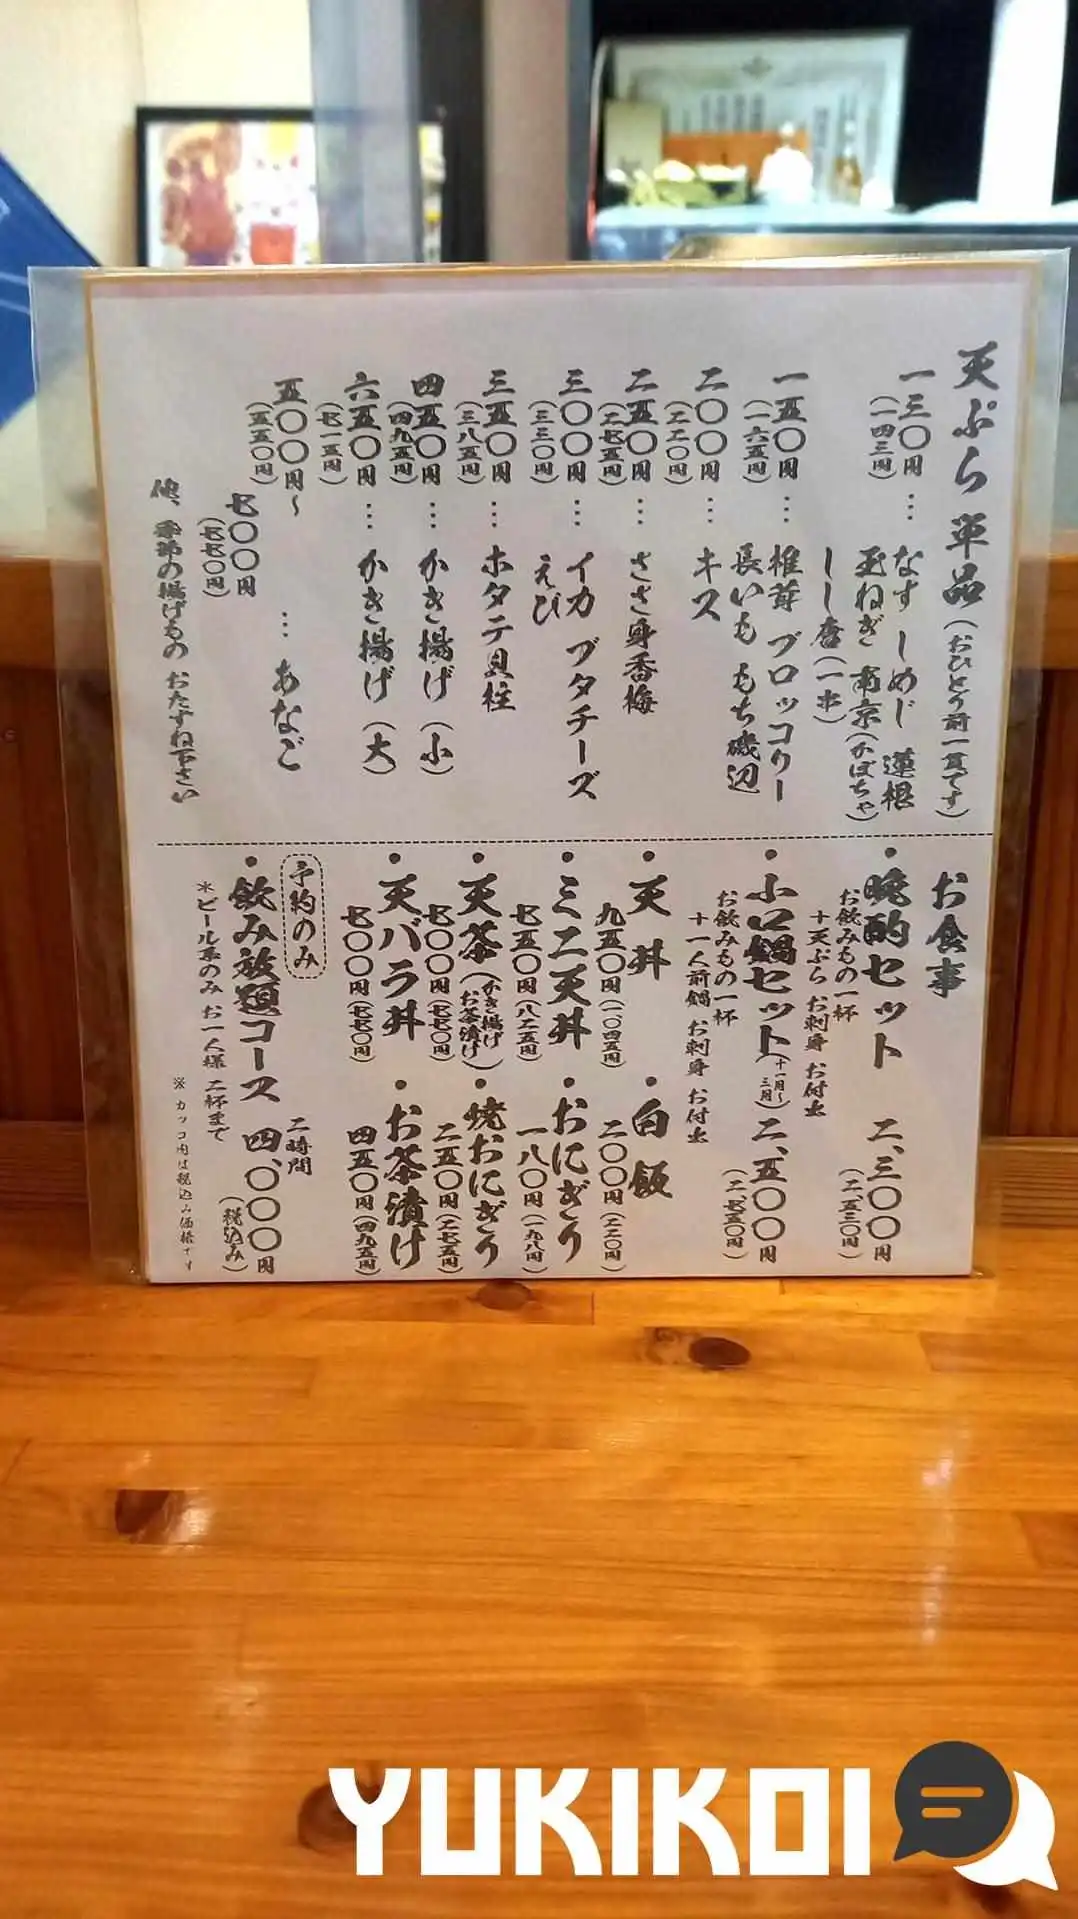 天ぷら単品(おひとり前一皿です)
一三〇円(一四三円)…なす しめじ 蓮根
玉ねぎ 南京(かぼちゃ)
しし唐(一串)
一五〇円(一六五円)…椎茸 ブロッコリー
長いも もち磯辺
二〇〇円(二二〇円)…キス
二五〇円(二七五円)…ささ身香梅
三〇〇円(三三〇円)…イカ ブタチーズ
えび
三五〇円(三八五円)…ホタテ貝柱
四五〇円(四九五円)…かき揚げ(小)
六五〇円(七一五円)…かき揚げ(大)
五〇〇円(五五〇円)〜
七〇〇円(七七〇円)…あなご
他、季節の揚げもの おたずね下さい
お食事
・晩酌セット 二、三〇〇円(二、五三〇円)
お飲みもの一杯
十天ぷら お刺身 お付出
・小口鍋セット(十一月〜三月)二、五〇〇円(二、七五〇円)
お飲みもの一杯
十一人前鍋 お刺身 お付出
・天丼
九五〇円(一、〇四五円)
・白飯
二〇〇円(二二〇円)
・ミニ天丼
七五〇円(八二五円)
・おにぎり
一八〇円(一九八円)
・天茶(かき揚げお茶漬け)
七〇〇円(七七〇円)
・焼おにぎり
二五〇円(二七五円)
・天バラ丼
七〇〇円(七七〇円)
・お茶漬け
四五〇円(四九五円)
予約のみ
・飲み放題コース 二時間 四、〇〇〇円(税込み)
*ビール系のみ お一人様 二杯まで
※カッコ内は税込み価格です
YUKIKOI